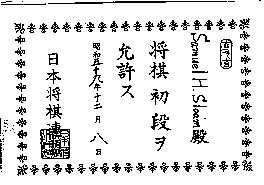 Samuel H. Sloan殿
将棋初段ヲ
允許ス
昭和五十九年十二月八日
日本将棋連盟